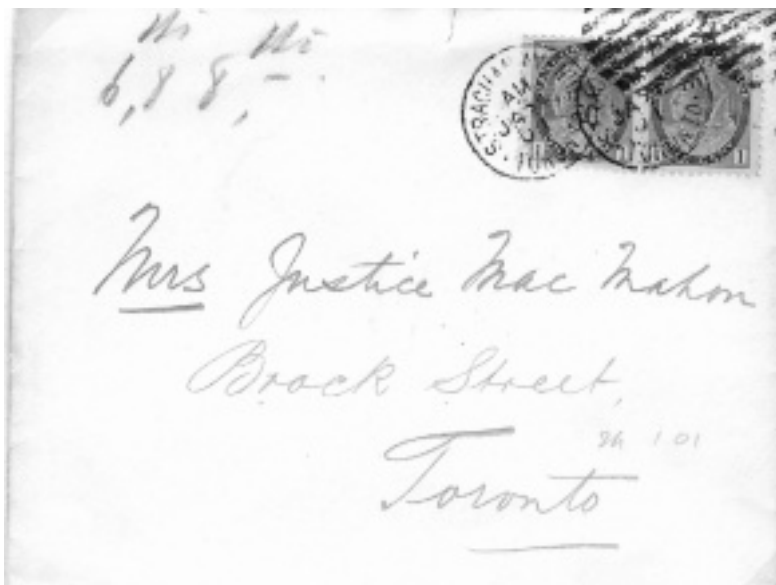 6,8 8,-
STRACHAN
AM
1 1
Mrs Justice Mac Mahon
Brock Street,
1 01
Toronto